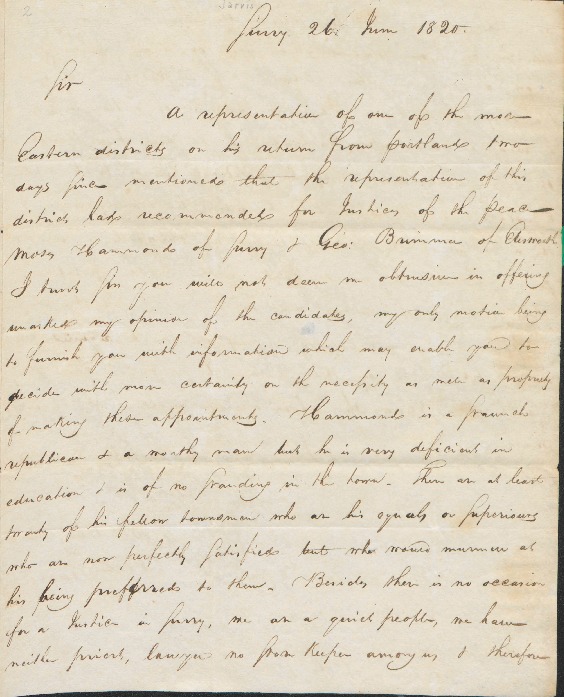 2
Jarvis
Surry 26. June 1820.
Sir
A representative of one of the more
Eastern districts on his return from Portland two
days since mentioned that the representative of this
district had recommended for Justices of the peace
Moses Hammond of Surry & Geo: Brimmer of Elsworth
I trust Sir you will not deem me obtrusive in offering
unasked my opinion of the candidates, my only motive being
to furnish you with information which may enable you to
decide with more certainty on the necessity as well as propriety
of making these appointments. Hammond is a staunch
republican & a worthy man but he is very deficient in
education & is of no standing in the town. There are at least
twenty of his fellow townsmen who are his equals or superiours
who are now perfectly satisfied but who would murmur at
his being preferred to them. Besides there is no occasion
for a Justice in Surry, we are a quiet people, we have
neither priest, lawyer no Grog Keeper among us & therefore